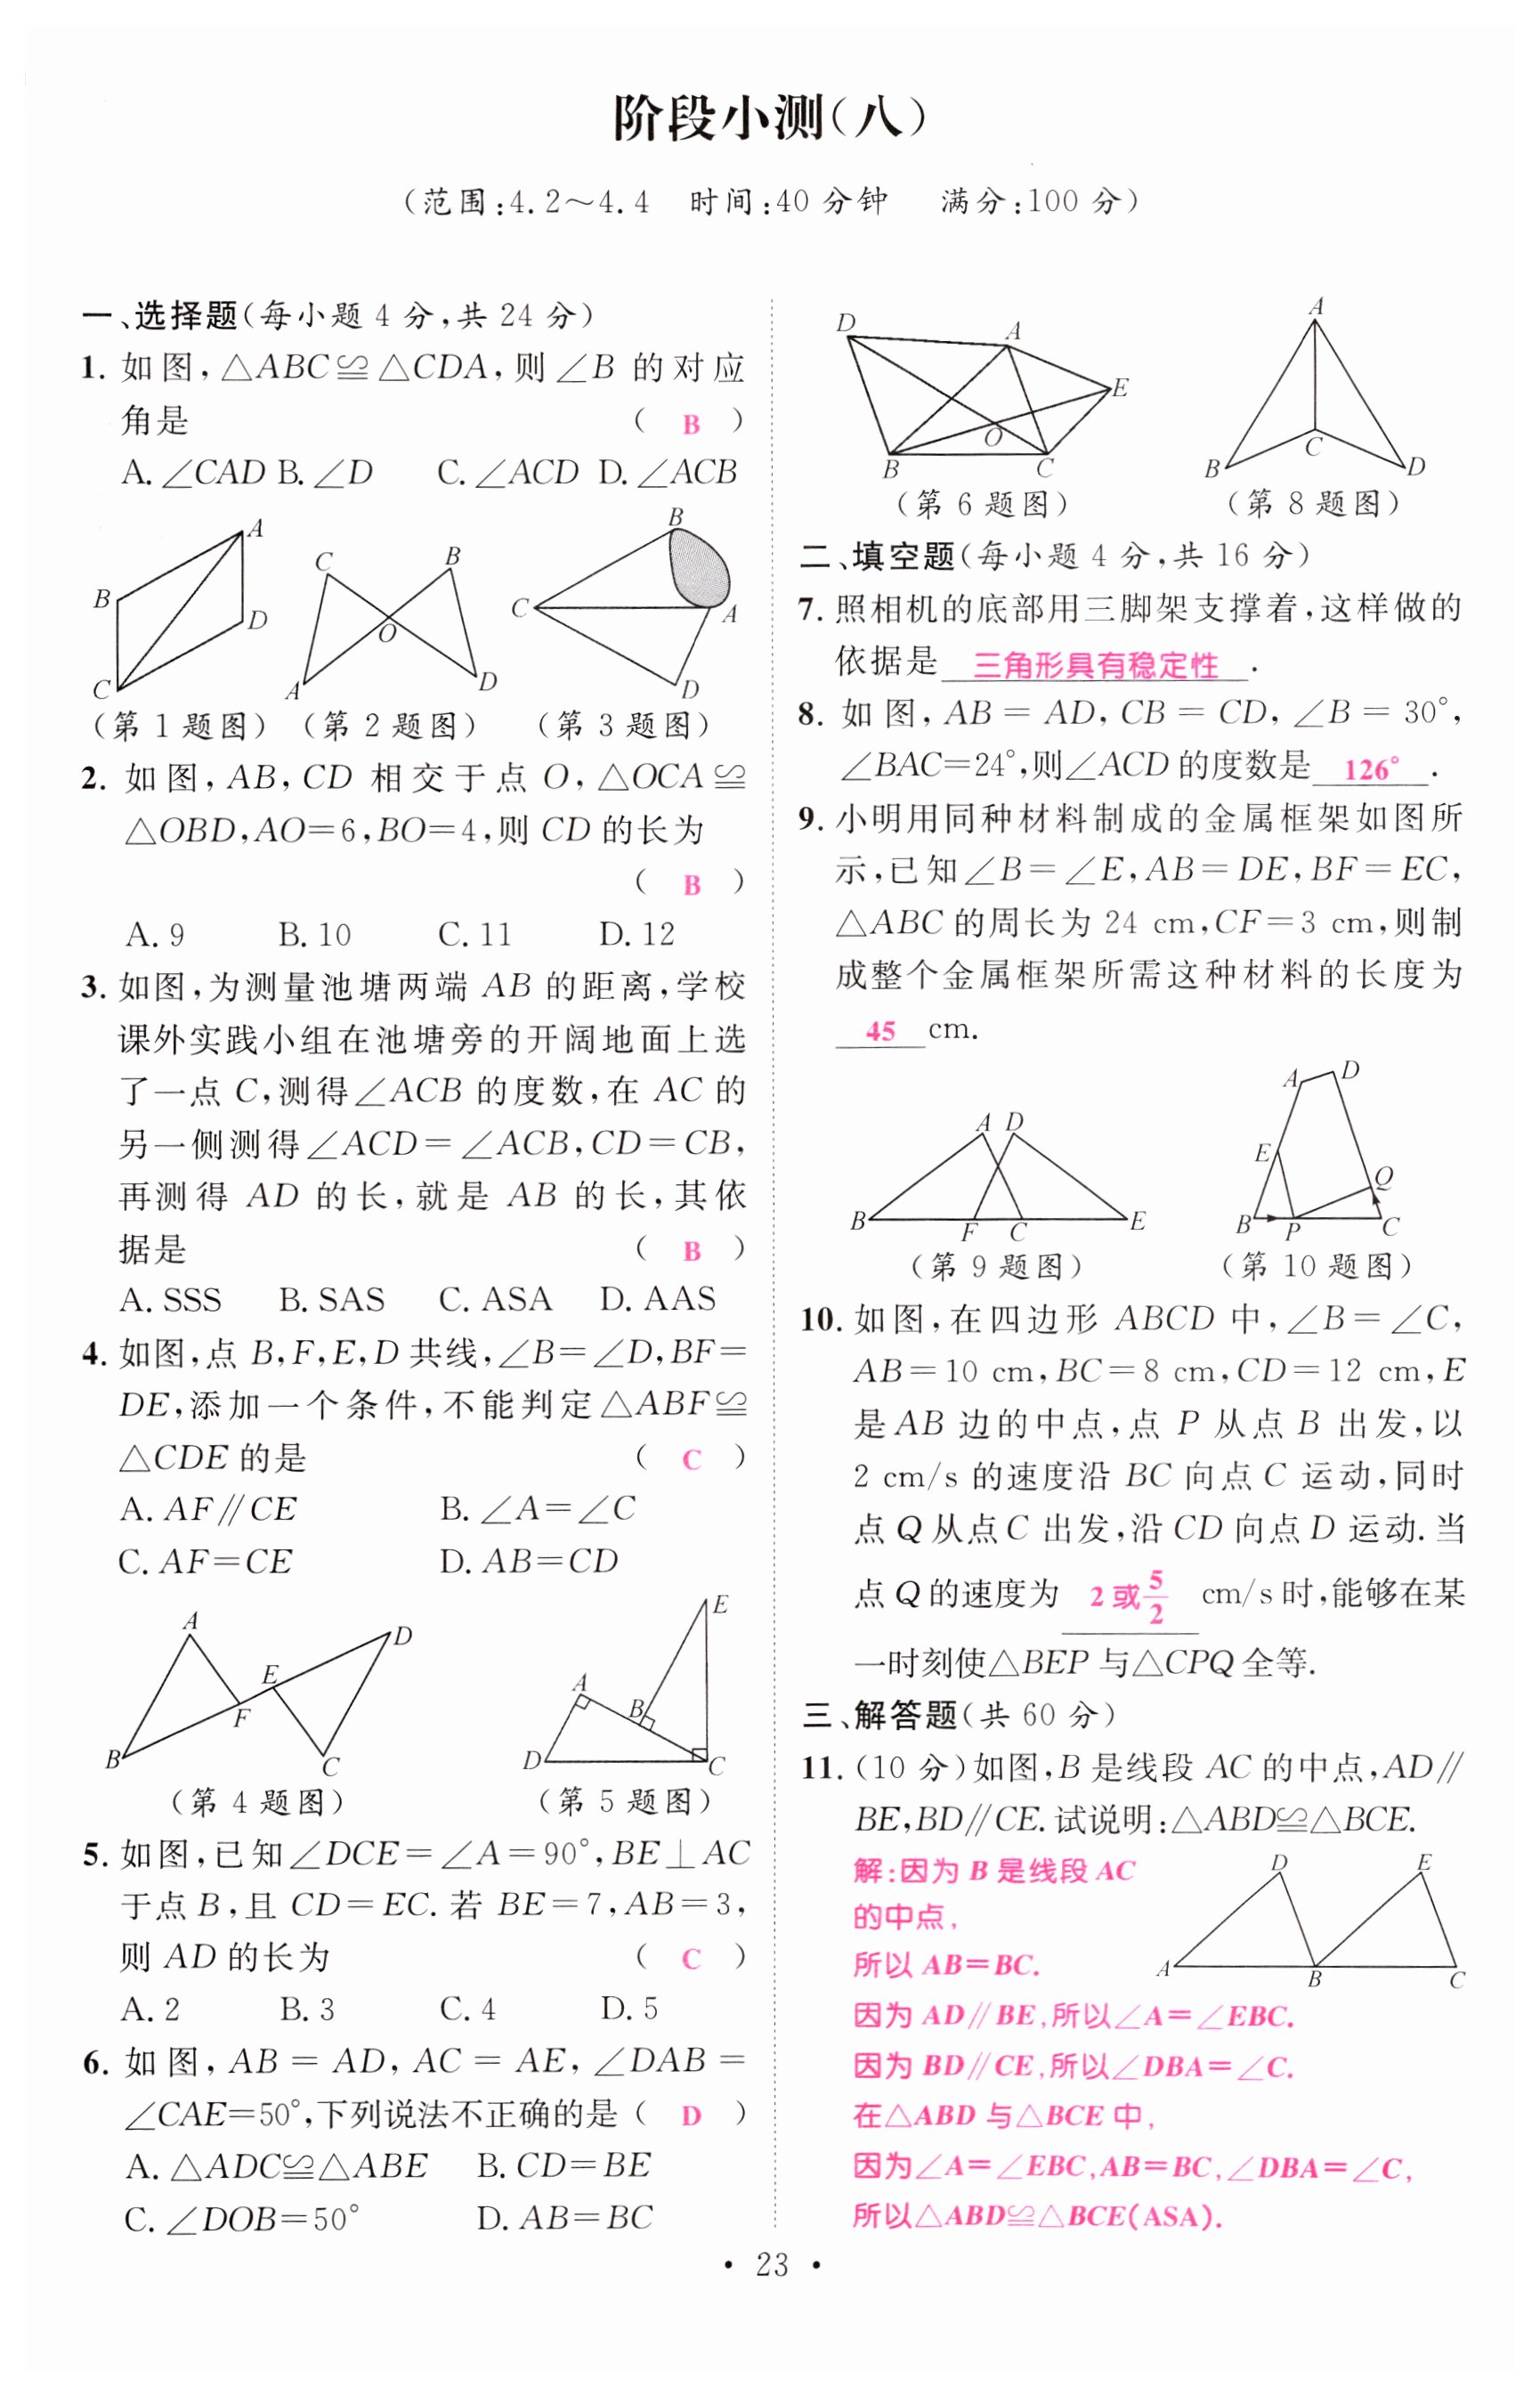 阶段小测(八)
(范围:4.2～4.4　时间:40 分钟　满分:100 分)
一、选择题(每小题 4 分,共 24 分)
1. 如图,△ABC≌△CDA,则∠B 的对应
角是 ( B )
A. ∠CAD B. ∠D C. ∠ACD D. ∠ACB
A
B
D
C
(第 1 题图)
C
B
O
A
D
(第 2 题图)
B
C
A
D
(第 3 题图)
2. 如图,AB,CD 相交于点 O,△OCA≌
△OBD,AO=6,BO=4,则 CD 的长为
( B )
A. 9 B. 10 C. 11 D. 12
3. 如图,为测量池塘两端 AB 的距离,学校
课外实践小组在池塘旁的开阔地面上选
了一点 C,测得∠ACB 的度数,在 AC 的
另一侧测得∠ACD=∠ACB,CD=CB,
再测得 AD 的长,就是 AB 的长,其依
据是 ( B )
A. SSS B. SAS C. ASA D. AAS
4. 如图,点 B,F,E,D 共线,∠B=∠D,BF=
DE,添加一个条件,不能判定△ABF≌
△CDE 的是 ( C )
A. AF∥CE B. ∠A=∠C
C. AF=CE D. AB=CD
A
D
E
F
B
C
(第 4 题图)
E
A
B
D
C
(第 5 题图)
5. 如图,已知∠DCE=∠A=90°,BE⊥AC
于点 B,且 CD=EC. 若 BE=7,AB=3,
则 AD 的长为 ( C )
A. 2 B. 3 C. 4 D. 5
6. 如图,AB=AD,AC=AE,∠DAB=
∠CAE=50°,下列说法不正确的是 ( D )
A. △ADC≌△ABE B. CD=BE
C. ∠DOB=50° D. AB=BC
D
A
E
O
B
C
(第 6 题图)
A
C
B
D
(第 8 题图)
二、填空题(每小题 4 分,共 16 分)
7. 照相机的底部用三脚架支撑着,这样做的
依据是 三角形具有稳定性 .
8. 如图,AB=AD,CB=CD,∠B=30°,
∠BAC=24°,则∠ACD 的度数是 126° .
9. 小明用同种材料制成的金属框架如图所
示,已知∠B=∠E,AB=DE,BF=EC,
△ABC 的周长为 24 cm,CF=3 cm,则制
成整个金属框架所需这种材料的长度为
45 cm.
A D
B
F C
E
(第 9 题图)
A D
E
Q
B P C
(第 10 题图)
10. 如图,在四边形 ABCD 中,∠B=∠C,
AB=10 cm,BC=8 cm,CD=12 cm,E
是 AB 边的中点,点 P 从点 B 出发,以
2 cm/s 的速度沿 BC 向点 C 运动,同时
点 Q 从点 C 出发,沿 CD 向点 D 运动. 当
点 Q 的速度为 2或5/2 cm/s 时,能够在某
一时刻使△BEP 与△CPQ 全等.
三、解答题(共 60 分)
11. (10 分)如图,B 是线段 AC 的中点,AD∥
BE,BD∥CE. 试说明:△ABD≌△BCE.
解:因为 B 是线段 AC
的中点,
所以 AB=BC.
D
E
A
B
C
因为 AD∥BE,所以∠A=∠EBC.
因为 BD∥CE,所以∠DBA=∠C.
在△ABD 与△BCE 中,
因为∠A=∠EBC,AB=BC,∠DBA=∠C,
所以△ABD≌△BCE(ASA).
• 23 •